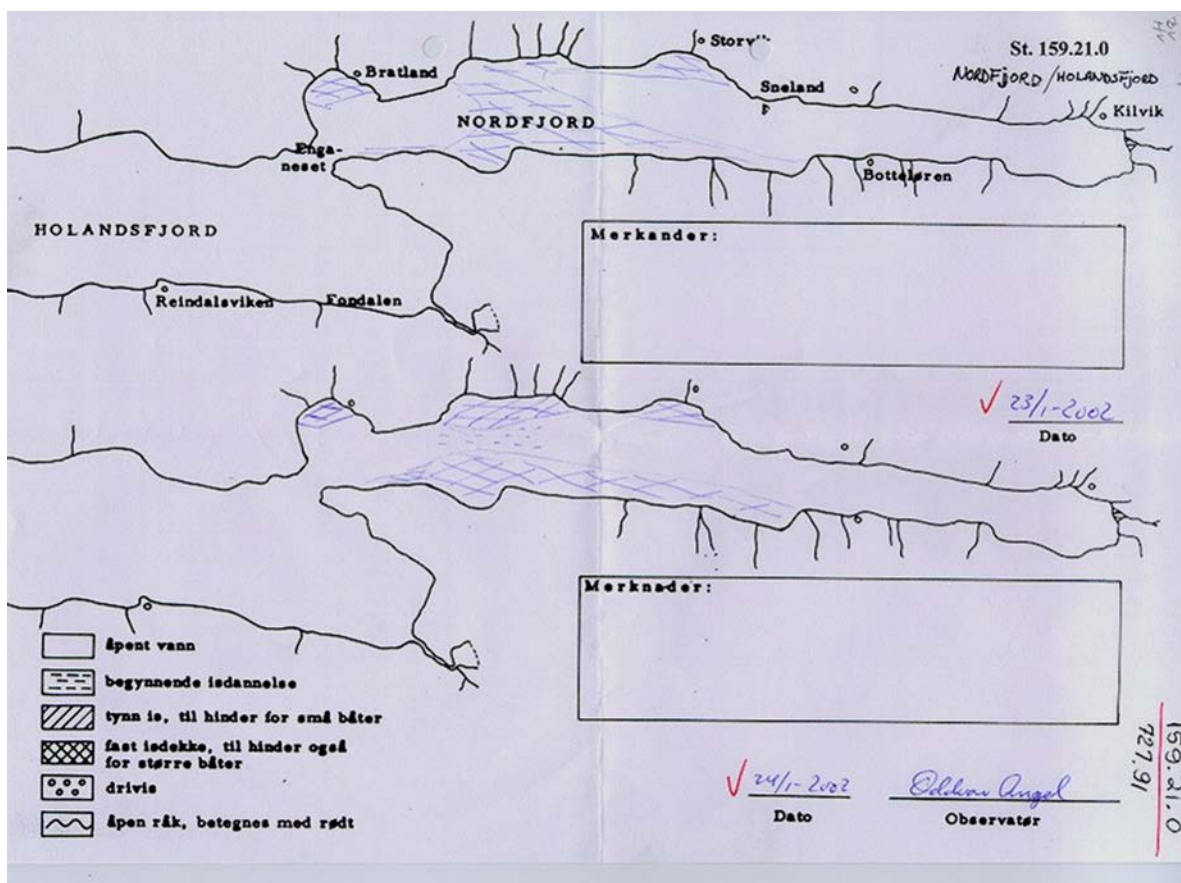 St. 159.21.0
NORDFJORD/HOLANDSFJORD
Bratland
Sneland
Kilvik
NORDFJORD
Enga-
neset
Botteløren
HOLANDSFJORD
Merkander:
Reindalsviken
Fondalen
23/1-2002
Dato
Merknader:
åpent vann
begynnende isdannelse
tynn is, til hinder for små båter
fast isdekke, til hinder også
for større båter
drivis
åpen råk, betegnes med rødt
24/1-2002
Dato
Oddvar Angel
Observatør
159.21.0
727.91